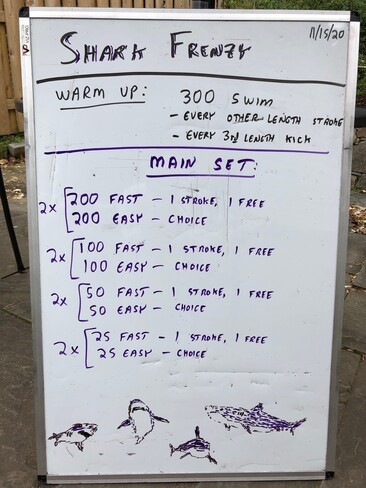 SHARK FRENZY
11/15/20
WARM UP: 300 SWIM
- EVERY OTHER LENGTH STROKE
- EVERY 3rd LENGTH KICK
MAIN SET:
2x [200 FAST - 1 STROKE, 1 FREE
200 EASY - CHOICE
2x [100 FAST - 1 STROKE, 1 FREE
100 EASY - CHOICE
2x [50 FAST - 1 STROKE, 1 FREE
50 EASY - CHOICE
2x [25 FAST - 1 STROKE, 1 FREE
25 EASY - CHOICE